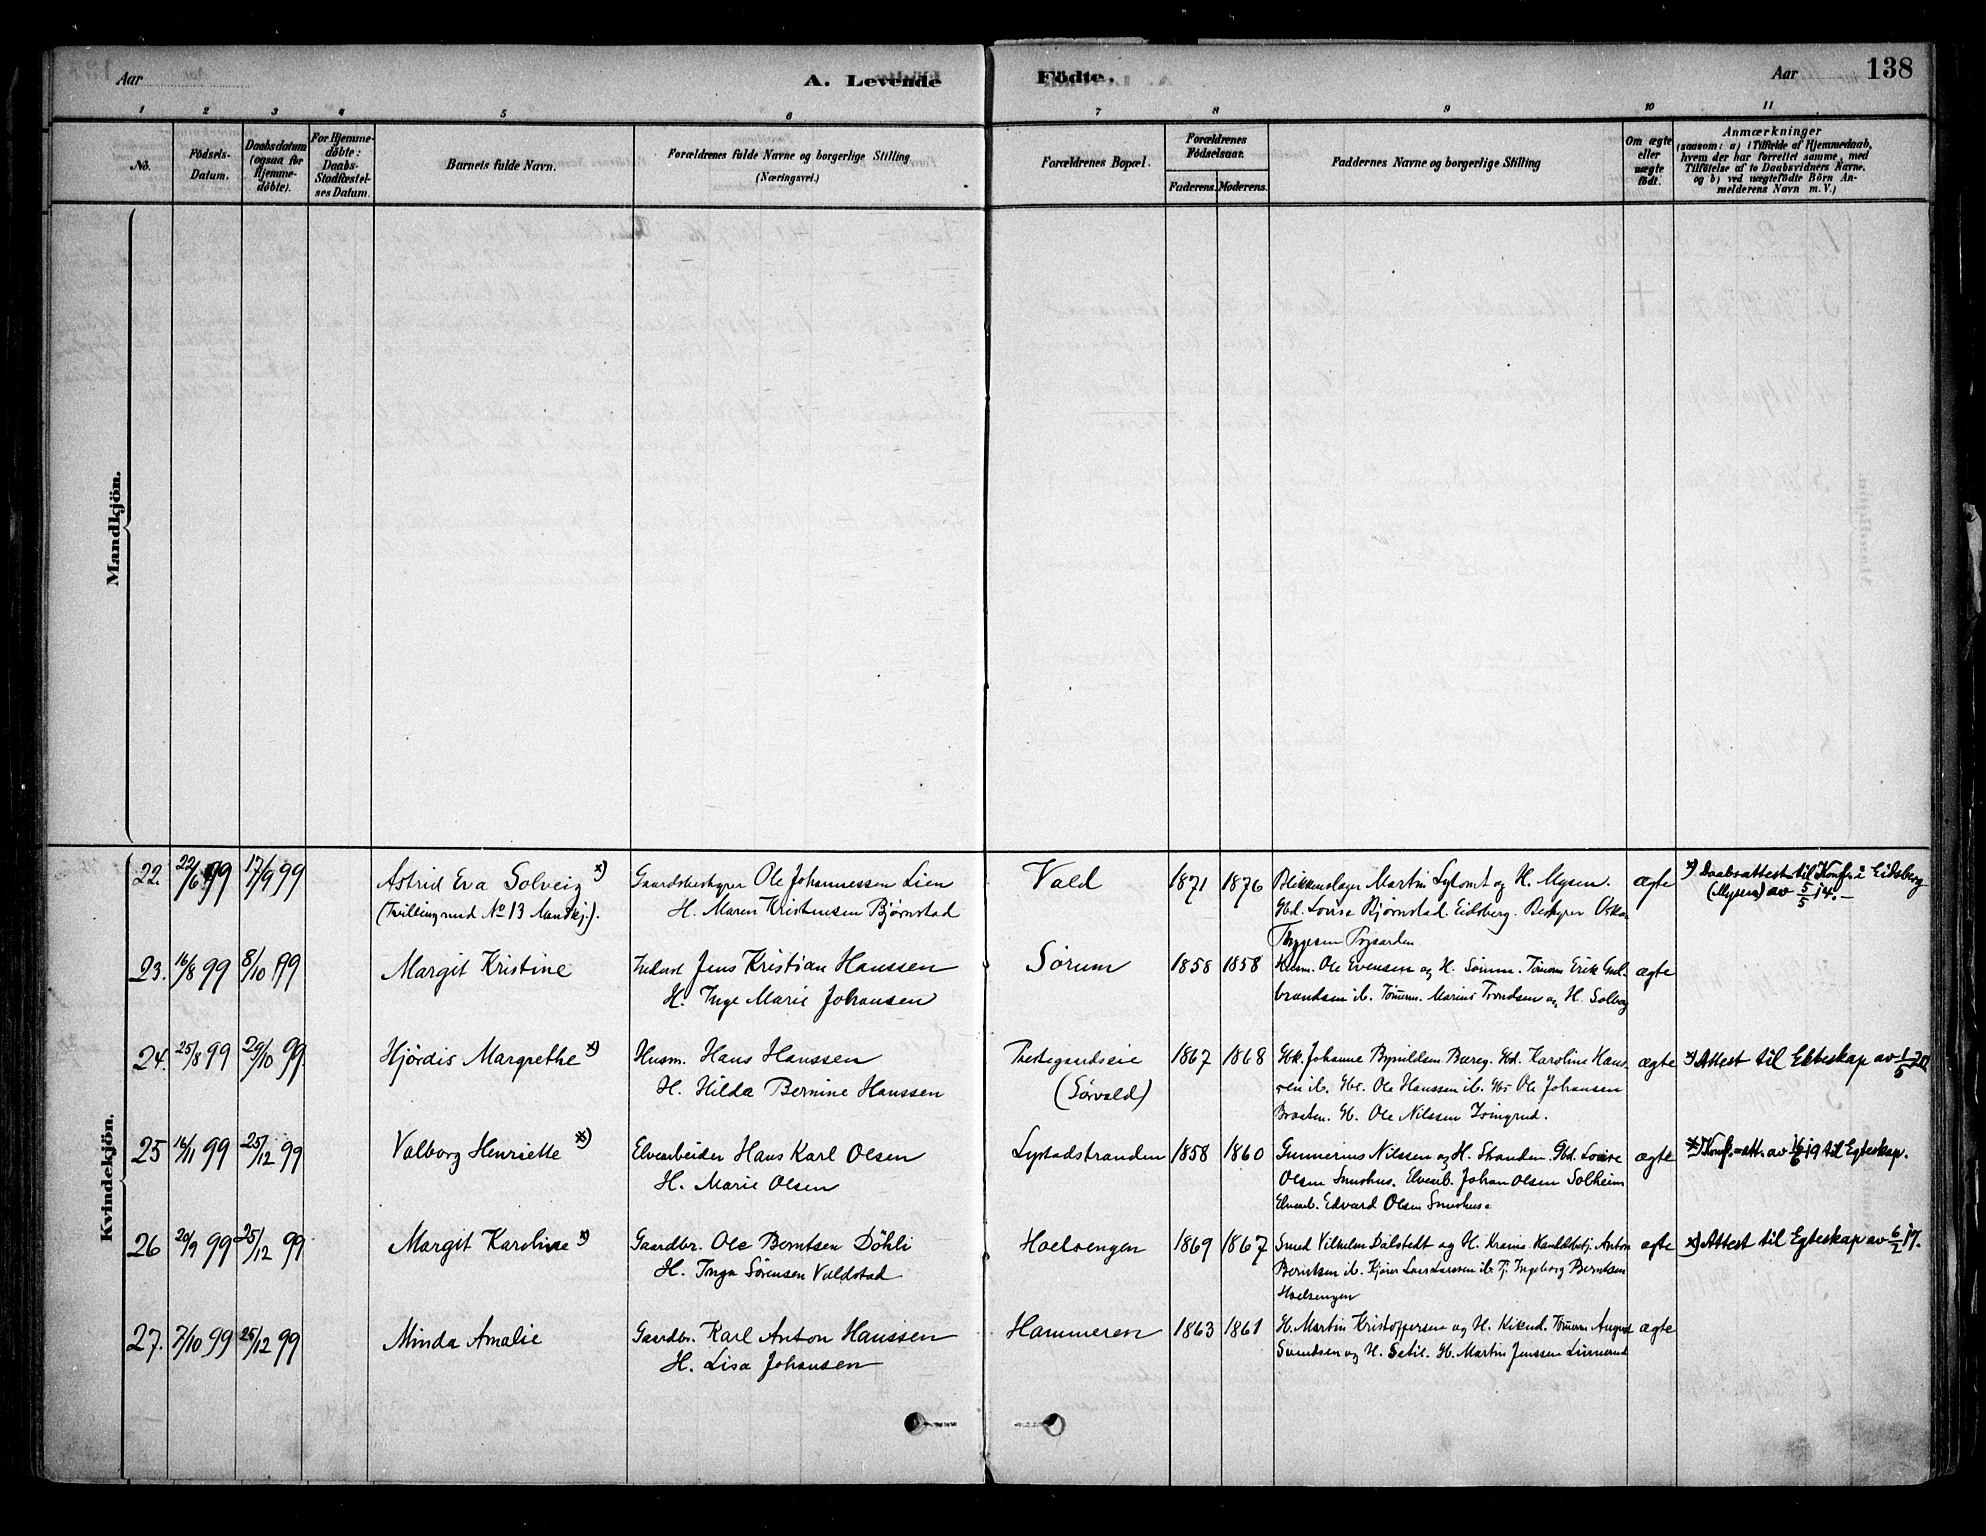 Aar
A. Levende
Födte.
Aar 138
1 2 3 4 5 6 7 8 9 10 11
No.
Födsels-
Datum.
Daabsdatum
(ogsaa for
Hjemme-
döbte).
For Hjemme-
döbte:
Daabs-
Stadfæstel-
ses Datum.
Barnets fulde Navn.
Forældrenes fulde Navne og borgerlige Stilling
(Næringsvei.)
Forældrenes Bopæl.
Forældrenes
Födselsaar.
Faderens. Moderens.
Faddernes Navne og borgerlige Stilling
Om ægte
eller
uægte
födt.
Anmærkninger
(saasom: a) i Tilfælde af Hjemmedaab,
hvem der har forrettet samme, med
Tilföielse af to Daabsvidners Navne,
og b) ved uægtefödte Börn An-
melderens Navn m. V.)
Mandkjön.
Kvindekjön.
22. 22/6 99 17/9 99
Astrid Eva Solveig *)
(Tvilling med No 13 Mandkj.).
Gaardsbestyrer Ole Johannessen Lien
H. Maren Kristensen Bjørnstad
Vald
1871 1876
Blikkenslager Martin Lytomt og H. Mysen.
Gbd. Lovise Bjørnstad. Eidsberg. Bestyrer Oskar
ægte
*) Daabsattest til Konf. i Eidsberg
(Mysen) av 5/5 14.
23. 16/8 99 8/10 99
Margit Kristine
Jens Kristian Hanssen
H. Inge Marie Johansen
Sørum
1858 1858
Husm. Ole Evensen og H. Tømm. Erik Gul-
brandsen ib. Tømm. Marius Trondsen og H. Solberg
ægte
24. 25/8 99 29/10 99
Hjördis Margrethe *)
Husm. Hans Hanssen
H. Hilda Bernine Hanssen
Prestegaardseie
(Sørvald)
1867 1868
Johanne Bereg. Gbd. Karoline Hans-
sen ib. Ole Hanssen ib. Ole Johansen
Braaten. Ole Nilssen
ægte
*) Attest til Ekteskap av 1/5 20
25 16/11 99 25/12 99
Valborg Henriette *)
Elvearbeider Hans Karl Olsen
H. Marie Olsen
Lystadstranden
1858 1860
Gunnerius Nilssen og H. Stranden. Gbd. Lovise
Olsen Smehus. Elvearb. Johan Olsen Solheim
Elvearb. Edvard Olsen Smehus.
ægte
*) Konf.-att. av 19 til Egteskap.
26 20/9 99 25/12 99
Margit Karoline *)
Gaardbr. Ole Berntsen Döhli
H. Inga Sørensen Valdstad
Hoelsengen
1869 1867
Smed Vilhelm Dalstedt og H. Anton
Berntsen ib. Lars Larssen ib. Tj. Ingeborg Berntsen
Hoelsengen
ægte
*) Attest til Egteskap av 6/2 17.
27. 7/10 99 25/12 99
Minda Amalie
Gaardbr. Karl Anton Hanssen
H. Lisa Johansen
Hammeren
1863 1861
Martin Kristoffersen og H. Tømm. August
Svendsen og H. Martin Jenssen
ægte